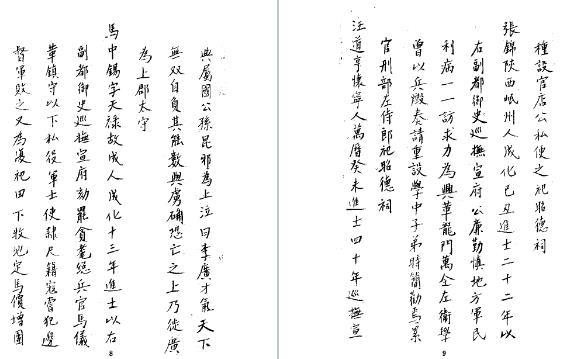 典屬國公孫昆邪為上泣曰李廣才氣天下
無双自負其能數與虜确恐亡之上乃徙廣
為上郡太守
馬中錫字天祿故城人成化十三年進士以右
副都御史巡撫宣府劾罷貪耄總兵官馬儀
革鎮守以下私役軍士使隸尺籍寇嘗犯邊
督軍敗之又為祀田下牧地定馬價增團
8
種設官店公私使之祀昭德祠
張錦陝西岷州人成化己丑進士二十二年以
右副都御史巡撫宣府公廉勤慎地方軍民
利病一一訪求力為興革龍門萬全左衛學
曾以兵燬奏請重設學中子弟特簡勸焉累
官刑部左侍郎祀昭德祠
汪道亨懷寧人萬曆癸未進士四十年巡撫宣
9